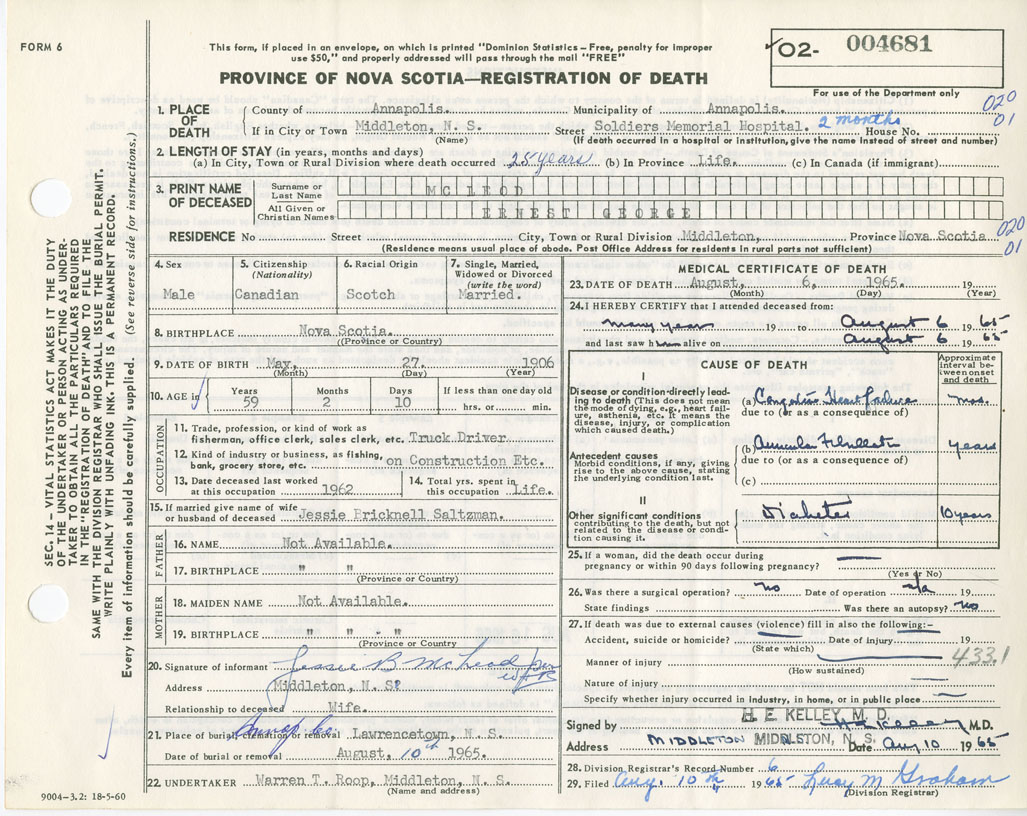 FORM 6
This form, if placed in an envelope, on which is printed "Dominion Statistics—Free, penalty for improper
use $50," and properly addressed will pass through the mail "FREE"
PROVINCE OF NOVA SCOTIA—REGISTRATION OF DEATH
02- 004681
For use of the Department only
SEC. 14 – VITAL STATISTICS ACT MAKES IT THE DUTY
OF THE UNDERTAKER OR PERSON ACTING AS UNDER-
TAKER TO OBTAIN ALL THE PARTICULARS REQUIRED
IN THE "REGISTRATION OF DEATH" AND TO FILE THE
SAME WITH THE DIVISION REGISTRAR WHO SHALL ISSUE THE BURIAL PERMIT.
WRITE PLAINLY WITH UNFADING INK. THIS IS A PERMANENT RECORD.
Every item of information should be carefully supplied. (See reverse side for instructions.)
1. PLACE OF DEATH
County of Annapolis. Municipality of Annapolis. 020 01
If in City or Town Middleton, N. S. Street Soldiers Memorial Hospital. 2 months House No.
(Name) (If death occurred in a hospital or institution, give the name instead of street and number)
2. LENGTH OF STAY (in years, months and days)
(a) In City, Town or Rural Division where death occurred 25 years (b) In Province Life. (c) In Canada (if immigrant)
3. PRINT NAME OF DECEASED
Surname or Last Name MCLEOD
All Given or Christian Names ERNEST GEORGE
RESIDENCE No Street City, Town or Rural Division Middleton, Province Nova Scotia 020 01
(Residence means usual place of abode. Post Office Address for residents in rural parts not sufficient)
4. Sex
Male
5. Citizenship
(Nationality)
Canadian
6. Racial Origin
Scotch
7. Single, Married,
Widowed or Divorced
(write the word)
Married.
8. BIRTHPLACE Nova Scotia.
(Province or Country)
9. DATE OF BIRTH May, 27. 1906
(Month) (Day) (Year)
10. AGE in Years Months Days If less than one day old
59 2 10 hrs. or min.
OCCUPATION
11. Trade, profession, or kind of work as
fisherman, office clerk, sales clerk, etc. Truck Driver.
12. Kind of industry or business, as fishing,
bank, grocery store, etc. on Construction Etc.
13. Date deceased last worked
at this occupation 1962
14. Total yrs. spent in
this occupation Life.
15. If married give name of wife
or husband of deceased Jessie Pricknell Saltzman.
FATHER
16. NAME Not Available.
17. BIRTHPLACE " "
(Province or Country)
MOTHER
18. MAIDEN NAME Not Available.
19. BIRTHPLACE " " "
(Province or Country)
20. Signature of informant Jessie B McLeod
Address Middleton, N. S.
Relationship to deceased Wife.
21. Place of burial, cremation or removal Annap Co. Lawrencetown, N. S.
Date of burial or removal August, 10th 1965.
22. UNDERTAKER Warren T. Roop, Middleton, N. S.
(Name and address)
9004-3.2: 18-5-60
MEDICAL CERTIFICATE OF DEATH
23. DATE OF DEATH August, 6, 1965. 19
(Month) (Day) (Year)
24. I HEREBY CERTIFY that I attended deceased from:
many year 19 to August 6 1965
and last saw him alive on August 6 1965
CAUSE OF DEATH
Approximate
interval be-
tween onset
and death
I
Disease or condition directly lead-
ing to death (This does not mean
the mode of dying, e.g., heart fail-
ure, asthenia, etc. It means the
disease, injury, or complication
which caused death.)
(a) Congestive Heart failure mos.
due to (or as a consequence of)
Antecedent causes
Morbid conditions, if any, giving
rise to the above cause, stating
the underlying condition last.
(b) Auricular Fibrillation years
due to (or as a consequence of)
(c)
II
Other significant conditions
contributing to the death, but not
related to the disease or condi-
tion causing it.
Diabetes 10 years
25. If a woman, did the death occur during
pregnancy or within 90 days following pregnancy?
(Yes or No)
26. Was there a surgical operation? no Date of operation n/a
State findings Was there an autopsy? no
27. If death was due to external causes (violence) fill in also the following:–
Accident, suicide or homicide? Date of injury 19
(State which)
433.1
Manner of injury
(How sustained)
Nature of injury
Specify whether injury occurred in industry, in home, or in public place
H. E. KELLEY, M. D.
Signed by H E Kelley M.D.
Address MIDDLETON MIDDLETON, N. S. Date Aug 10 1965
28. Division Registrar's Record Number 6
29. Filed Aug. 10th 1965 Lucy M Graham
(Division Registrar)